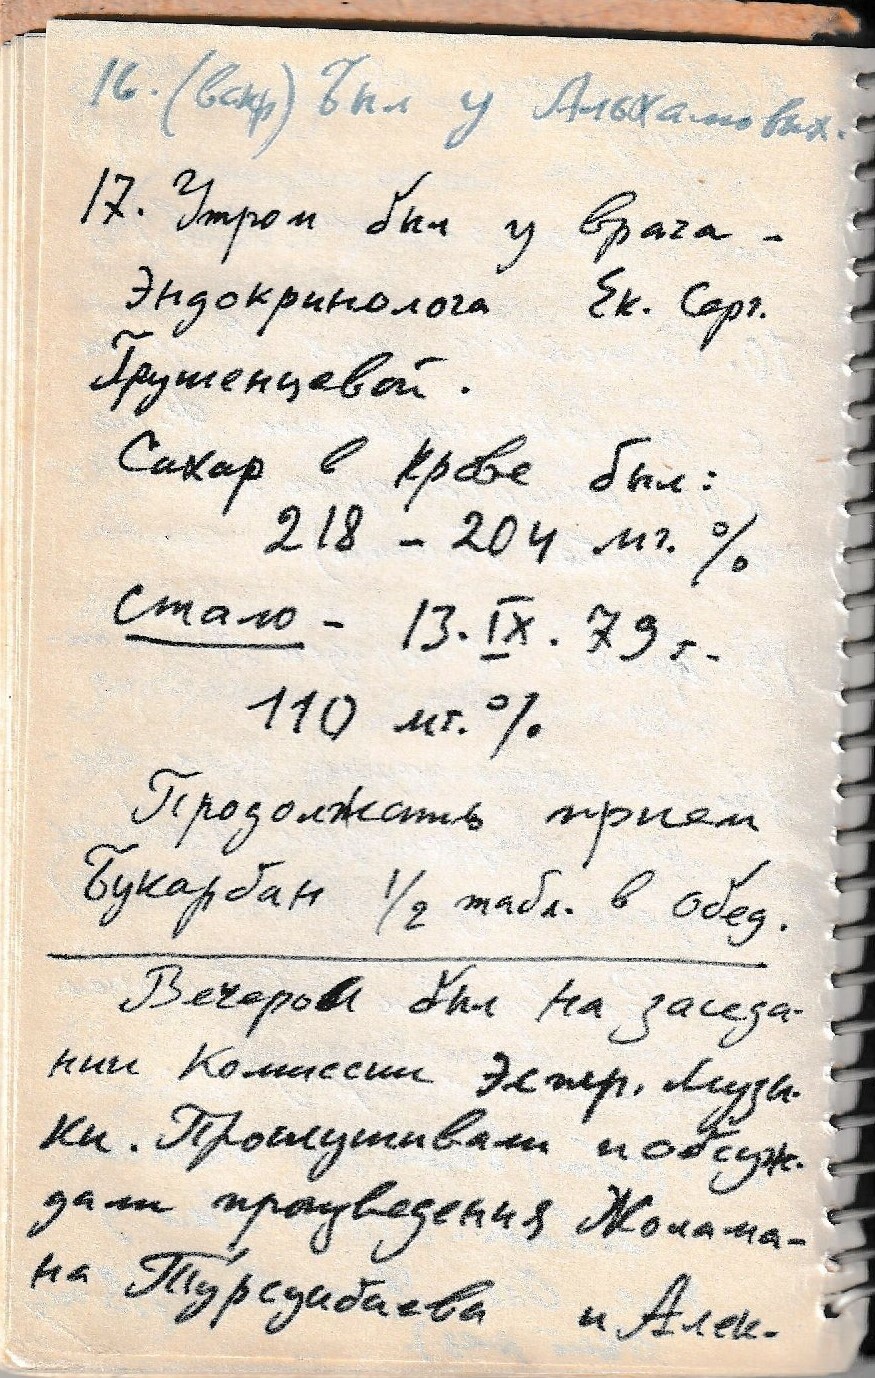 16. (вскр) был у Алыхамовых.
17. Утром был у врача -
Эндокринолога Ек. Серг.
Грушенцевой.
Сахар в крове был:
218 - 204 мг. %
Стало - 13. IX. 79 г.
110 мг. %
Продолжать прием
Букарбан 1/2 табл. в обед.
Вечером был на заседа-
нии комиссии Эстр. Музы-
ки. Прослушивали и обсуж-
дали произведения Жолама-
на Турсунбаева и Алек-